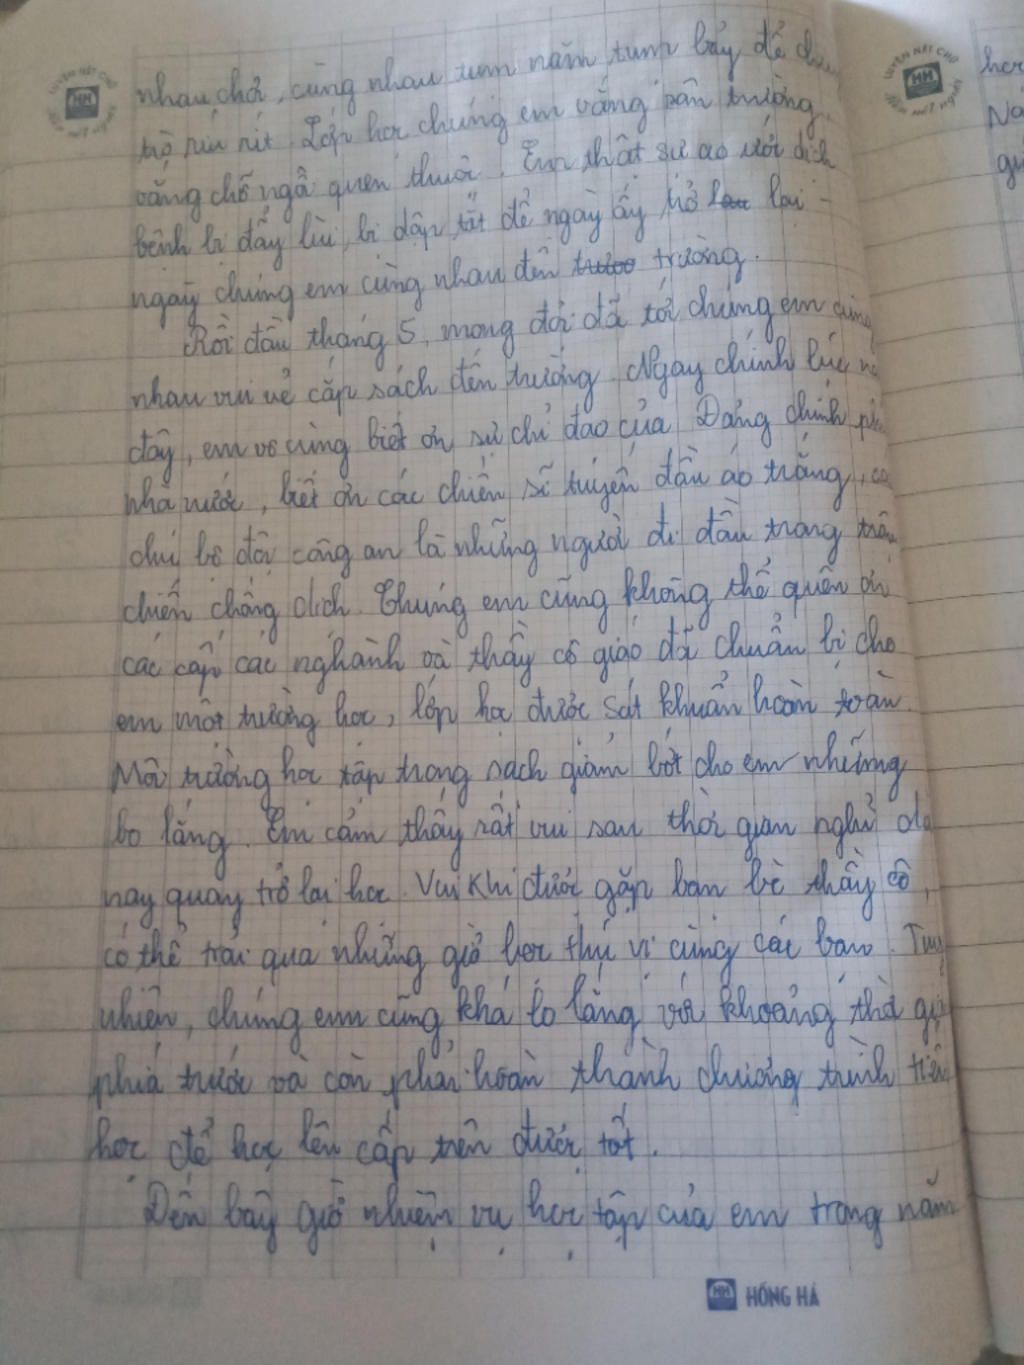 nhau chơi, cùng nhau tụm năm tụm bảy để
trò ríu rít. Lớp học chúng em vắng sân trường,
vắng chỗ ngồi quen thuộc. Em thật sự ao ước dịch
bệnh bị đẩy lùi, bị dập tắt để ngày ấy trở lại -
ngày chúng em cùng nhau đến trường.
Rồi đầu tháng 5, mong đợi đã tới chúng em cùng
nhau vui vẻ cặp sách đến trường. Ngay chính lúc
đây, em vô cùng biết ơn sự chỉ đạo của Đảng chính
nhà nước, biết ơn các chiến sĩ tuyến đầu áo trắng,
chú bộ đội công an là những người đi đầu trong
chiến chống dịch. Chúng em cũng không thể quên ơn
các cấp các nghành và thầy cô giáo đã chuẩn bị cho
em một trường học, lớp học được sát khuẩn hoàn toàn.
Môi trường học tập trong sạch giảm bớt cho em những
lo lắng. Em cảm thấy rất vui sau thời gian nghỉ
nay quay trở lại học. Vui khi được gặp bạn bè thầy cô,
có thể trải qua những giờ học thú vị cùng các bạn. Tuy
nhiên, chúng em cũng khá lo lắng với khoảng thời
phía trước và còn phải hoàn thành chương trình tiểu
học để học lên cấp trên được tốt.
Đến bây giờ nhiệm vụ học tập của em trong năm
HH HỒNG HÀ